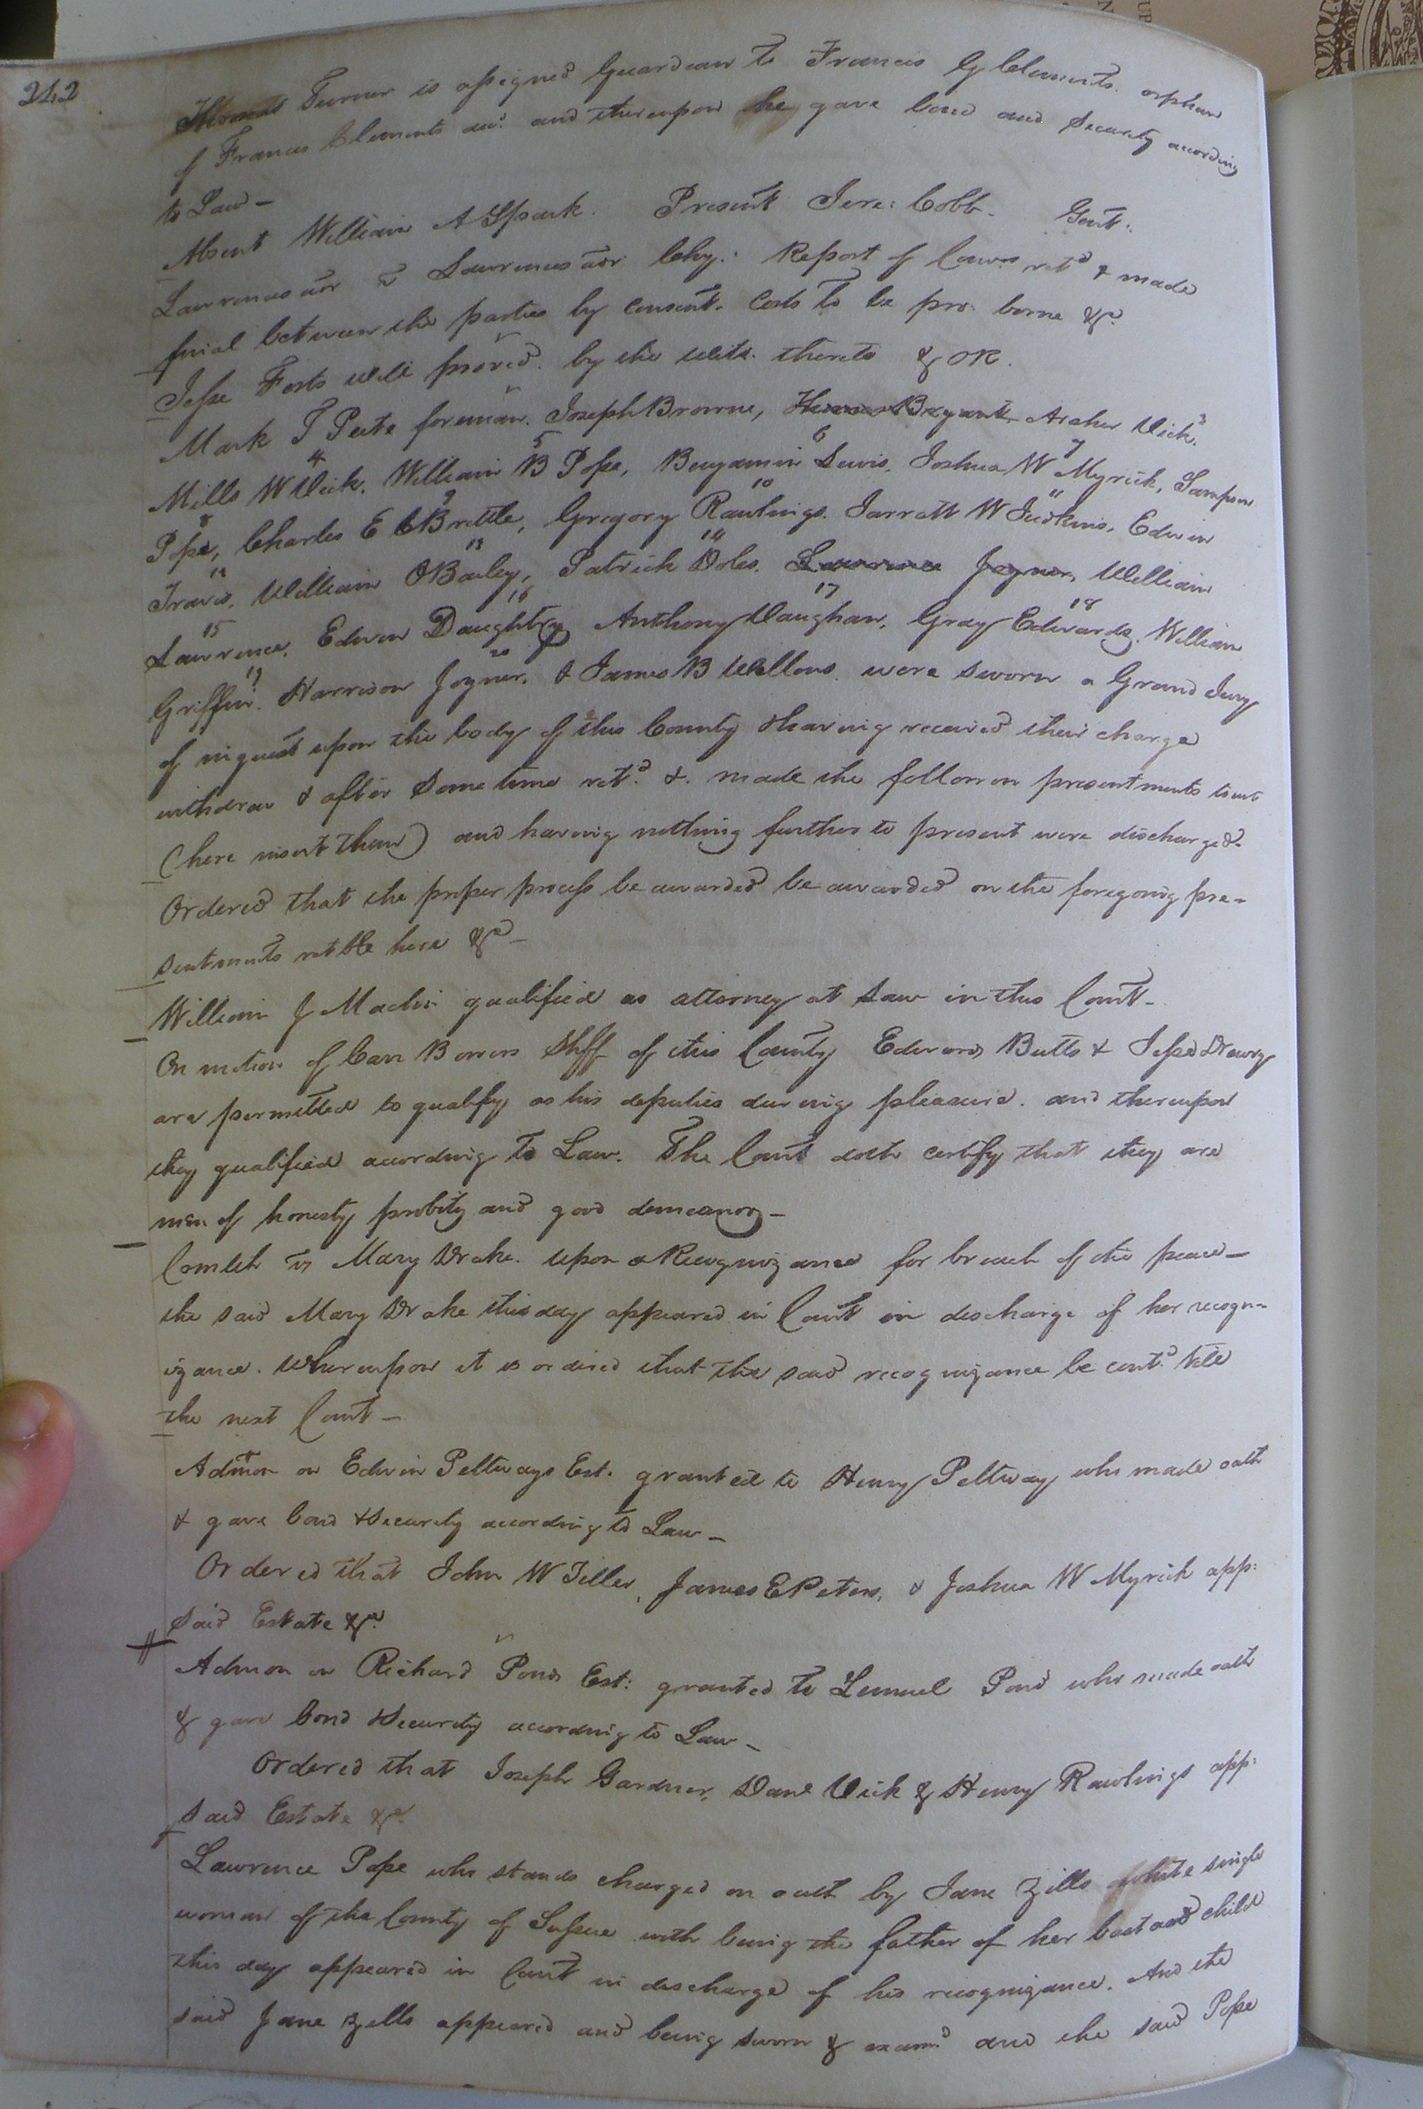 242
Thomas Turner is assigned Guardian to Francis G Clements. orphan
of Francis Clements decd. and thereupon he gave bond and security according
to Law –
Absent William A Spark. Present Jere: Cobb. Gent:
Lawrences adr vs Lawrences adr Chy: Report of Comrs retd & made
final between the parties by consent. Costs to be pro: borne &c.
Jesse Forts will proved by the wits. thereto & OR.
Mark T Peete foreman. Joseph Browne, Bryant Archer Vick. 3
Mills W Vick. 4 William B Pope, 5 Benjamin Lewis, 6 Joshua W Myrick, 7 Sampson
Pope, 8 Charles E C Brittle, 9 Gregory Rawlings. 10 Jarratt W Judkins, 11 Edwin
Travis, 12 William O Bailey, 13 Patrick Doles. 14 Lawrence Joyner, William
Lawrence, 15 Edwin Daughtry 16 Anthony Vaughan, 17 Gray Edwards, 18 William
Griffin, 19 Harrison Joyner, 20 & James B Wellons were sworn a Grand Jury
of inquest upon the body of this County & having received their charge
withdrew & after some time retd. & made the followin presentments towit
(here insert them) and having nothing further to present were discharged.
Ordered that the proper process be awarded be awarded on the foregoing pre-
sentments retble here &c –
William J Maclin qualified as attorney at Law in this Court –
On motion of Carr Bowers Shff of this County Edward Butts & Jesse Drewry
are permitted to qualify as his deputies during pleasure. and thereupon
they qualified according to Law. The Court doth certify that they are
men of honesty probity and good demeanor –
Comlth vs Mary Drake. upon a Recognizance for breach of the peace –
the said Mary Drake this day appeared in Court in discharge of her recogn-
izance. Whereupon it is ordered that the said recognizance be contd. till
the next Court –
Admon on Edwin Peltways Est. granted to Henry Peltway who made oath
& gave bond & security according to Law –
Ordered that John W Tiller, James E Peters, & Joshua W Myrick app:
said Estate &c.
Admon on Richard Ponds Est: granted to Lemuel Pond who made oath
& gave bond & security according to Law –
Ordered that Joseph Gardner, Danl Vick & Henry Rawlings app:
said Estate &c.
Lawrence Pope who stands charged on oath by Jane Zills white single
woman of the County of Sussex with being the father of her bastard child
this day appeared in Court in discharge of his recognizance. And the
said Jane Zells appeared and being sworn & examd and the said Pope